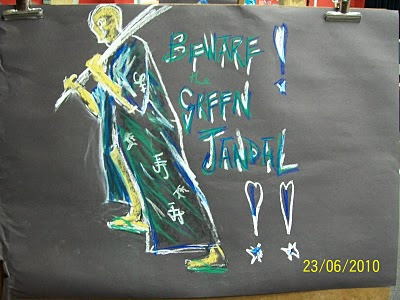 BEWARE!
the
GREEN
JANDAL
!!
23/06/2010